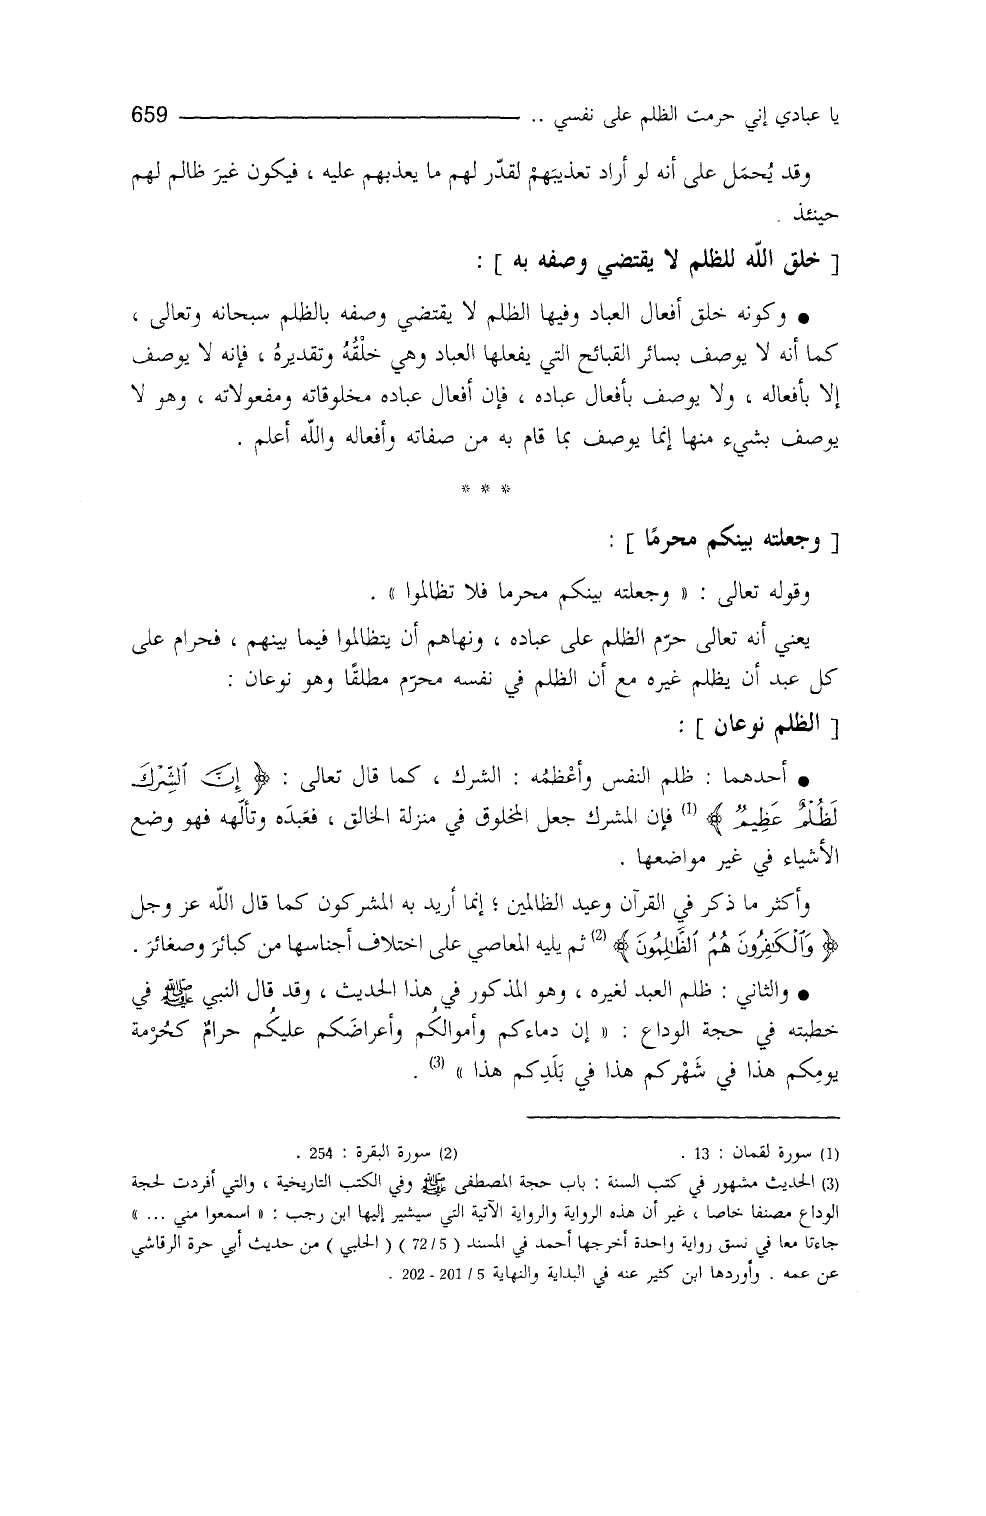 يا عبادي إني حرمت الظلم على نفسي .. 659
وقد يُحمَل على أنه لو أراد تعذيبَهمْ لقدّر لهم ما يعذبهم عليه ، فيكون غيرَ ظالم لهم
حينئذ .
[ خلق الله للظلم لا يقتضي وصفه به ] :
● وكونه خلق أفعال العباد وفيها الظلم لا يقتضي وصفه بالظلم سبحانه وتعالى ،
كما أنه لا يوصف بسائر القبائح التي يفعلها العباد وهي خلْقُهُ وتقديرهُ ، فإنه لا يوصف
إلا بأفعاله ، ولا يوصف بأفعال عباده ، فإن أفعال عباده مخلوقاته ومفعولاته ، وهو لا
يوصف بشيء منها إنما يوصف بما قام به من صفاته وأفعاله والله أعلم .
* * *
[ وجعلته بينكم محرمًا ] :
وقوله تعالى : « وجعلته بينكم محرما فلا تظالموا » .
يعني أنه تعالى حرّم الظلم على عباده ، ونهاهم أن يتظالموا فيما بينهم ، فحرام على
كل عبد أن يظلم غيره مع أن الظلم في نفسه محرّم مطلقًا وهو نوعان :
[ الظلم نوعان ] :
● أحدهما : ظلم النفس وأعْظمُه : الشرك ، كما قال تعالى : ﴿ إِنَّ ٱلشِّرْكَ
لَظُلْمٌ عَظِيمٌ ﴾ (1) فإن المشرك جعل المخلوق في منزلة الخالق ، فعَبدَه وتألّهه فهو وضع
الأشياء في غير مواضعها .
وأكثر ما ذكر في القرآن وعيد الظالمين ؛ إنما أريد به المشركون كما قال الله عز وجل
﴿ وَٱلْكَٰفِرُونَ هُمُ ٱلظَّٰلِمُونَ ﴾ (2) ثم يليه المعاصي على اختلاف أجناسها من كبائرَ وصغائرَ .
● والثاني : ظلم العبد لغيره ، وهو المذكور في هذا الحديث ، وقد قال النبي ﷺ في
خطبته في حجة الوداع : « إن دماءكم وأموالكُم وأعراضَكم عليكُم حرامٌ كحُرْمة
يومِكم هذا في شَهْركم هذا في بَلَدِكم هذا » (3) .
(1) سورة لقمان : 13 . (2) سورة البقرة : 254 .
(3) الحديث مشهور في كتب السنة : باب حجة المصطفى ﷺ وفي الكتب التاريخية ، والتي أفردت لحجة
الوداع مصنفا خاصا ، غير أن هذه الرواية والرواية الآتية التي سيشير إليها ابن رجب : « اسمعوا مني ... »
جاءتا معا في نسق رواية واحدة أخرجها أحمد في المسند ( 72/5 ) ( الحلبي ) من حديث أبي حرة الرقاشي
عن عمه . وأوردها ابن كثير عنه في البداية والنهاية 5 / 201 - 202 .